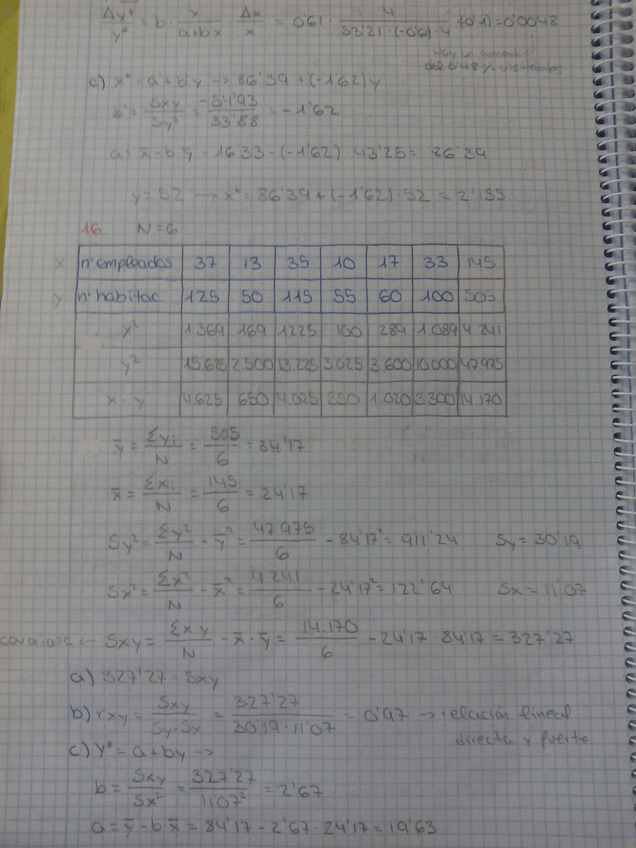 Δy*/y* = b · x/(a+bx) · Δx/x = 0'61 · 4/(53'21·(-0'6)·4) · (0'1) = 0'0048
Hay un
del 0'48%
c) x* = a'+b'y → 86'39 + (-1'62)y
b' = Sxy/Sy² = -54'93/33'88 = -1'62
a = x̄ - b ȳ = 16'33 - (-1'62) · 43'25 = 86'39
y = 52 → x* = 86'39 + (-1'62) · 52 = 2'155
16. N=6
x nº empleados 37 13 35 10 17 33 145
y nº habitac. 125 50 115 55 60 100 505
x² 1.369 169 1225 100 289 1.089 4.241
y² 15.625 2.500 13.225 3.025 3.600 10.000 47.975
x · y 4.625 650 4.025 550 1.020 3.300 14.170
ȳ = Σyi/N = 505/6 = 84'17
x̄ = Σxi/N = 145/6 = 24'17
Sy² = Σy²/N - ȳ² = 47.975/6 - 84'17² = 911'24 Sy = 30'19
Sx² = Σx²/N - x̄² = 4.241/6 - 24'17² = 122'64 Sx = 11'07
← Sxy = Σxy/N - x̄ · ȳ = 14.170/6 - 24'17 · 84'17 = 327'27
a) 327'27 = Sxy
b) rxy = Sxy/(Sy·Sx) = 327'27/(30'19·11'07) = 0'97 → relación lineal
directa y fuerte
c) y* = a + by →
b = Sxy/Sx² = 327'27/11'07² = 2'67
a = ȳ - b · x̄ = 84'17 - 2'67 · 24'17 = 19'63